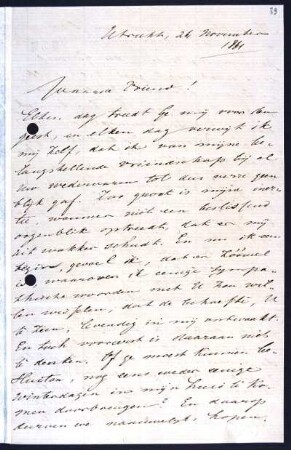 Utrecht, 26 November
1881
Waarde Vriend!
Elken dag treedt ge mij voor den
geest, en elken dag verwijt ik
mij zelf, dat ik van mijne be-
langstellende vriendschap bij al
Uw wedervaren tot dus verre geen
blijk gaf. Zoo groot is mijn
wanneer niet een beslissend
oogenblik optreedt, dat er mij
uit wakker schudt. En nu ik aan
gevoel ik, dat er zooveel
is waarover ik eenige sympa-
thische woorden met U zou wil-
len wisselen, dat de behoefte, U
te zien, levendig in mij ontwaakt.
En toch vooreerst is daaraan niet
te denken. Of ge moest kunnen be-
sluiten, nog eens weder eenige
winterdagen in mijn huis te ko-
men doorbrengen? En daarop
durven we nauwelijks hopen.